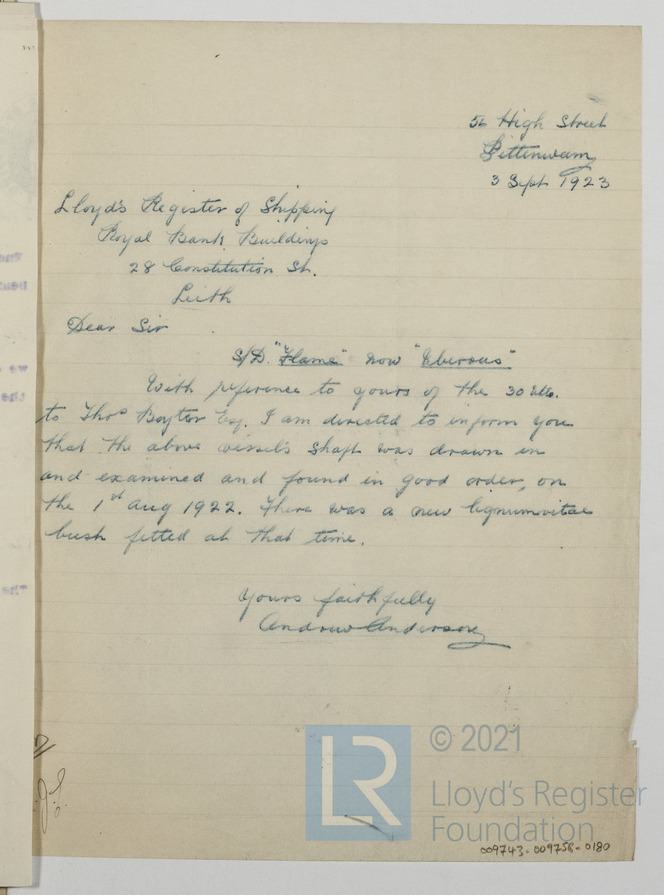 56 High Street
Pittenweem
3 Sept 1923
Lloyd's Register of Shipping
Royal Bank Buildings
28 Constitution St.
Leith
Dear Sir
S/D. "Flame" now "Uberous"
With reference to yours of the 30 Ulto.
to Thos Boyter Esq. I am directed to inform you
that the above vessel's shaft was drawn in
and examined and found in good order, on
the 1st Aug 1922. There was a new lignumvitae
bush fitted at that time.
Yours faithfully
Andrew Anderson
LR
© 2021
Lloyd's Register
Foundation
009743-009758-0180